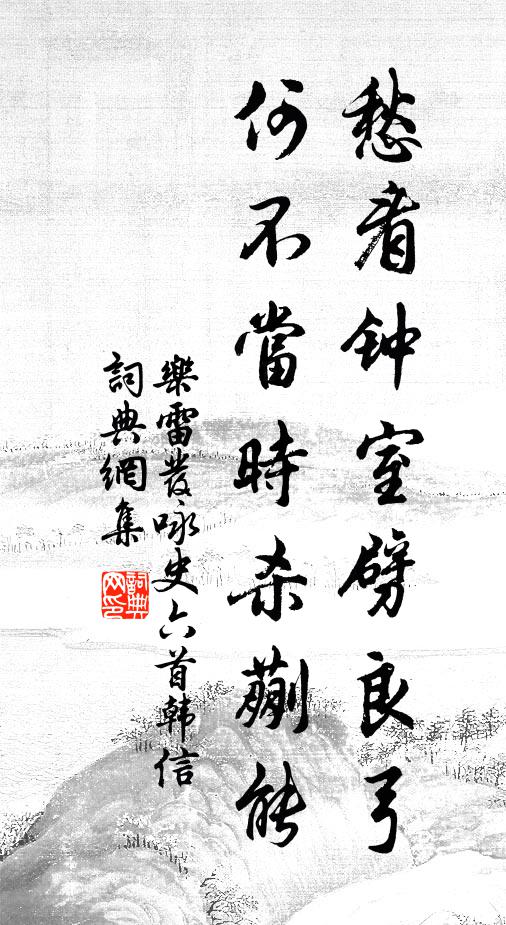 愁看钟室劈良弓
何不當時杀蒯能
樂雷發咏史六首韩信
詞典網集
詞典
网印